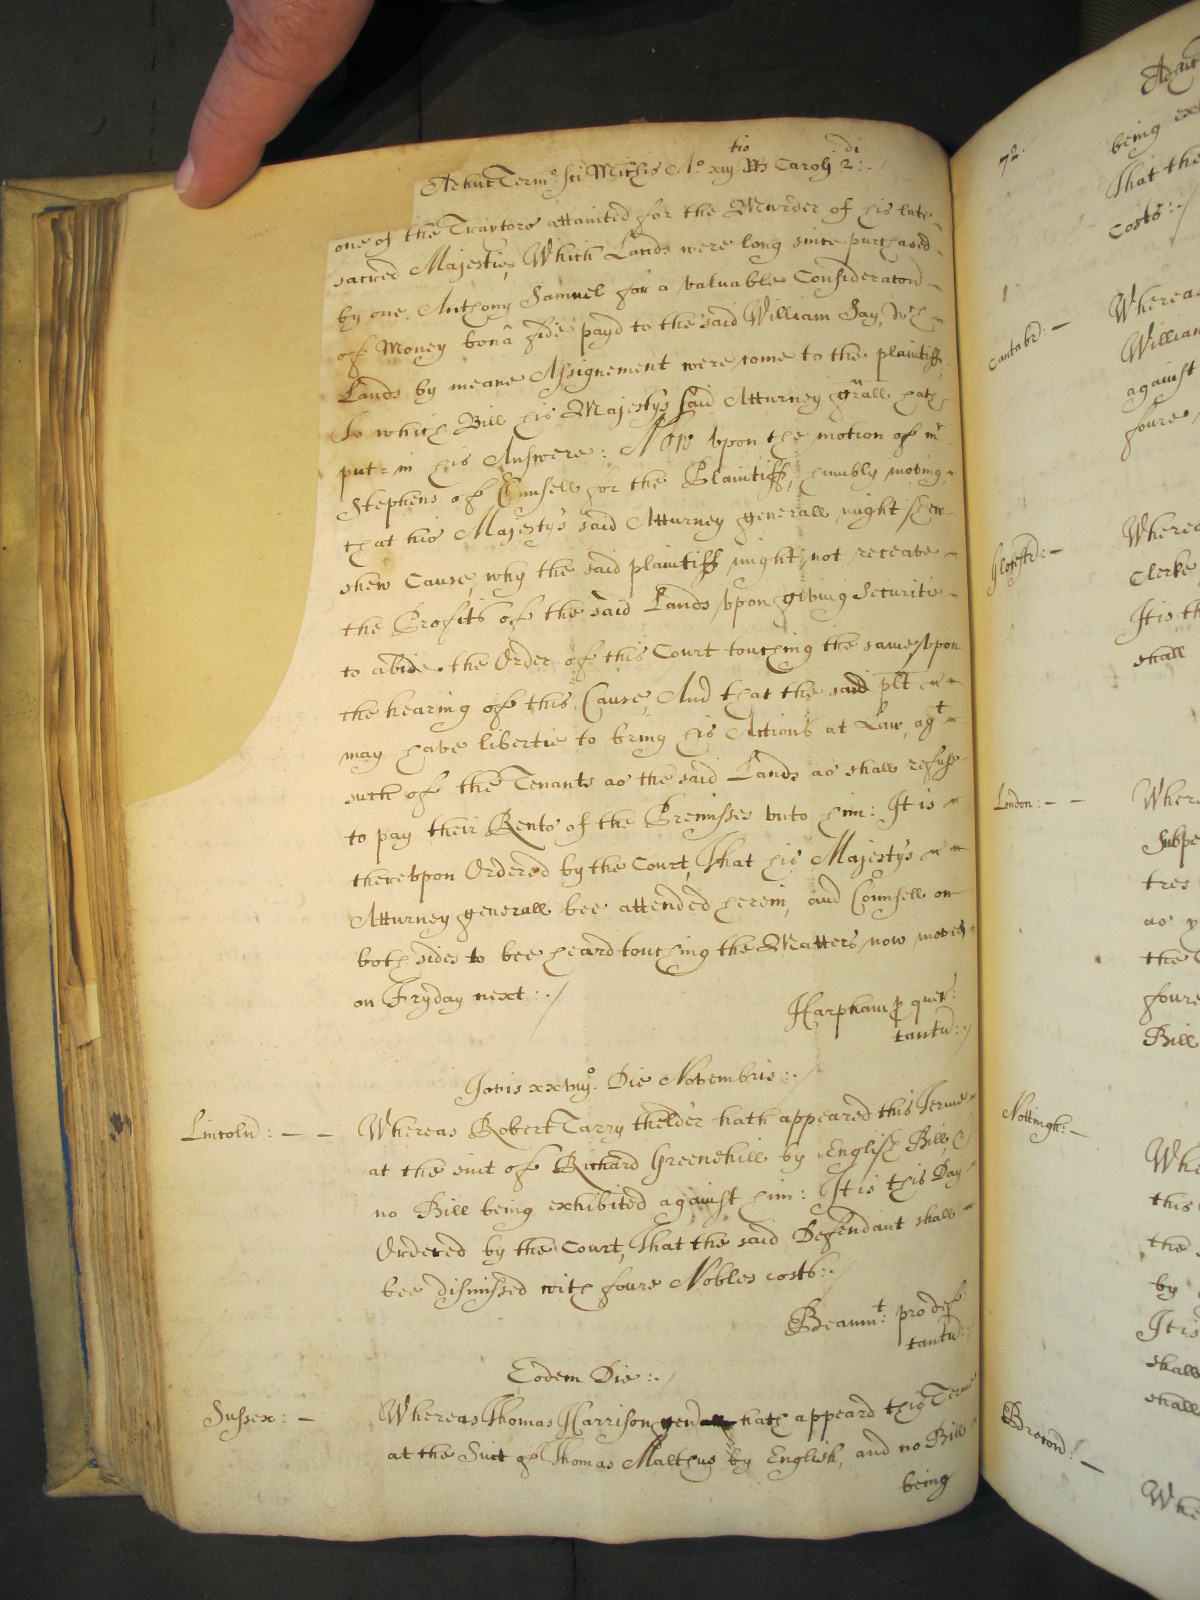 Adhuc Termo: Sci Michis Ao. xiij tio Rs Carolj 2: di ./
one of the Traytors attainted for the Murder of his late
sacred Majestie, Which Lands were long since purchased
by one Anthony Samuel for a valuable Consideracon
of Money bonâ fide payd to the said William Say, wch
Lands by meane Assignement were come to the plaintiff,
To which Bill his Majestys said Atturney grall hath
put in his Answere: Now vpon the motion of mr
Stephens of Counsell for the Plaintiff, humbly moving
that his Majestys said Atturney generall might shew
shew Cause, why the said plaintiff might not receave
the Profits of the said Lands vpon giving Securitie
to abide the Order of this Court touching the same, vpon
the hearing of this Cause, And that the said plt
may have libertie to bring his Actions at Law, agt
such of the Tenants as the said Lands as shall refuse
to pay their Rents of the Premisses vnto him: It is
therevpon Ordered by the Court, That his Majestys
Atturney generall bee attended herein, and Counsell on
both sides to bee heard touching the Matters now moved
on Fryday next :./
Harpham p quer:
tantu:/
Jovis xxviijo. Die Novembris:./
Lincoln: - -
Whereas Robert Tarry thelder hath appeared this Terme
at the suit of Richard Greenehill by English Bill, &
no Bill being exhibited against him: It is this Day
Ordered by the Court, That the said Defendant shall
bee dismissed with foure Nobles costs:./
Beaumt: pro def
tantu:/
Eodem Die:./
Sussex: -
Whereas Thomas Harrison gen hath appeard this Terme
at the Suit of Thomas Malthus by English, and no Bill
being
72.
being ex
That the
costs:./
Cantabr: -
Wherea
William
against
foure
Glocestr: -
Wherea
Clerke
It is th
shall
London: - -
Where
Subpe
tres
as
the
foure
Bill
Nottingh: -
Whe
this
the
by
It is
shall
shall
Brecon: -
Whe